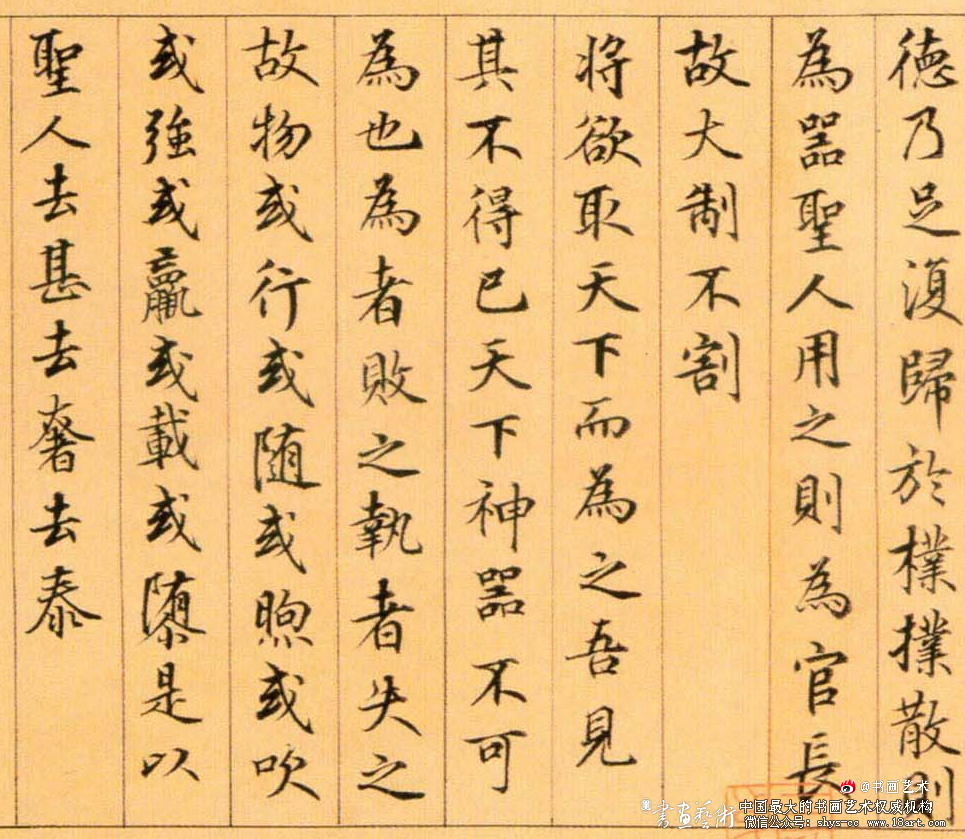 德乃足復歸於樸樸散則
為器聖人用之則為官長
故大制不割
將欲取天下而為之吾見
其不得已天下神器不可
為也為者敗之執者失之
故物或行或随或煦或吹
或強或羸或載或隳是以
聖人去甚去奢去泰
@书画艺术
書画藝術
中国最大的书画艺术权威机构
微信公众号：shys-cc www.18art.com